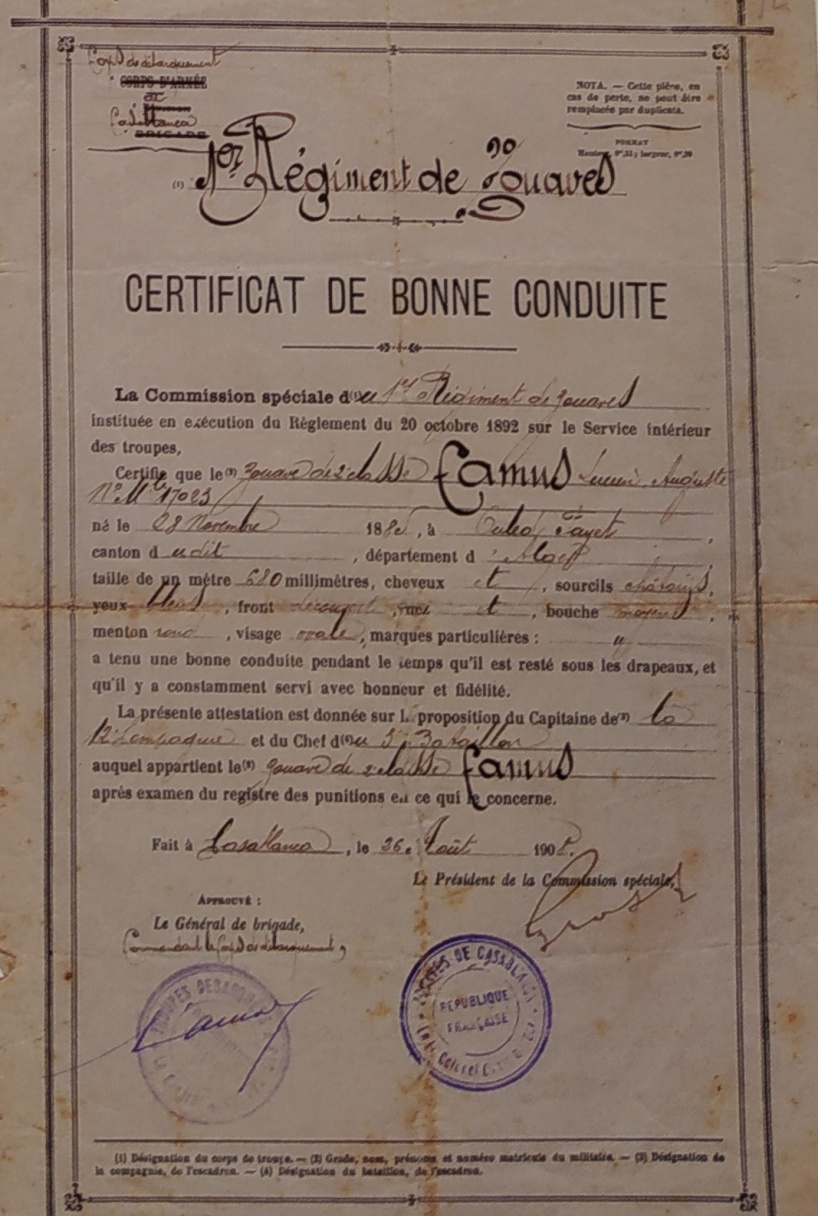 Corps de débarquement
CORPS D'ARMÉE
de
Casablanca
BRIGADE
NOTA. — Cette pièce, en
cas de perte, ne peut être
remplacée par duplicata.
FORMAT
(1) 1er Régiment de Zouaves
CERTIFICAT DE BONNE CONDUITE
La Commission spéciale d(1)u 1er Régiment de Zouaves
instituée en exécution du Règlement du 20 octobre 1892 sur le Service intérieur
des troupes,
Certifie que le(2) Zouave de 2e classe Camus Lucien Auguste
No Mle 17023
né le 28 Novembre 188 , à Ouled Fayet,
canton d udit , département d 'Alger
taille de un mètre 680 millimètres, cheveux et , sourcils châtains,
yeux bleus, front découvert, nez et , bouche moyens,
menton rond , visage ovale, marques particulières : "
a tenu une bonne conduite pendant le temps qu'il est resté sous les drapeaux, et
qu'il y a constamment servi avec honneur et fidélité.
La présente attestation est donnée sur la proposition du Capitaine de(3) la
12e Compagnie et du Chef d(4)u 3e Bataillon
auquel appartient le(2) Zouave de 2e classe Camus
après examen du registre des punitions en ce qui le concerne.
Fait à Casablanca, le 26. Août 1908.
Le Président de la Commission spéciale,
APPROUVÉ :
Le Général de brigade,
Commandant le Corps de débarquement,
TROUPES DÉBARQUÉES
DE CASABLANCA
REPUBLIQUE
FRANÇAISE
Colonel
(1) Désignation du corps de troupe. — (2) Grade, nom, prénoms et numéro matricule du militaire. — (3) Désignation de
la compagnie, de l'escadron. — (4) Désignation du bataillon, de l'escadron.